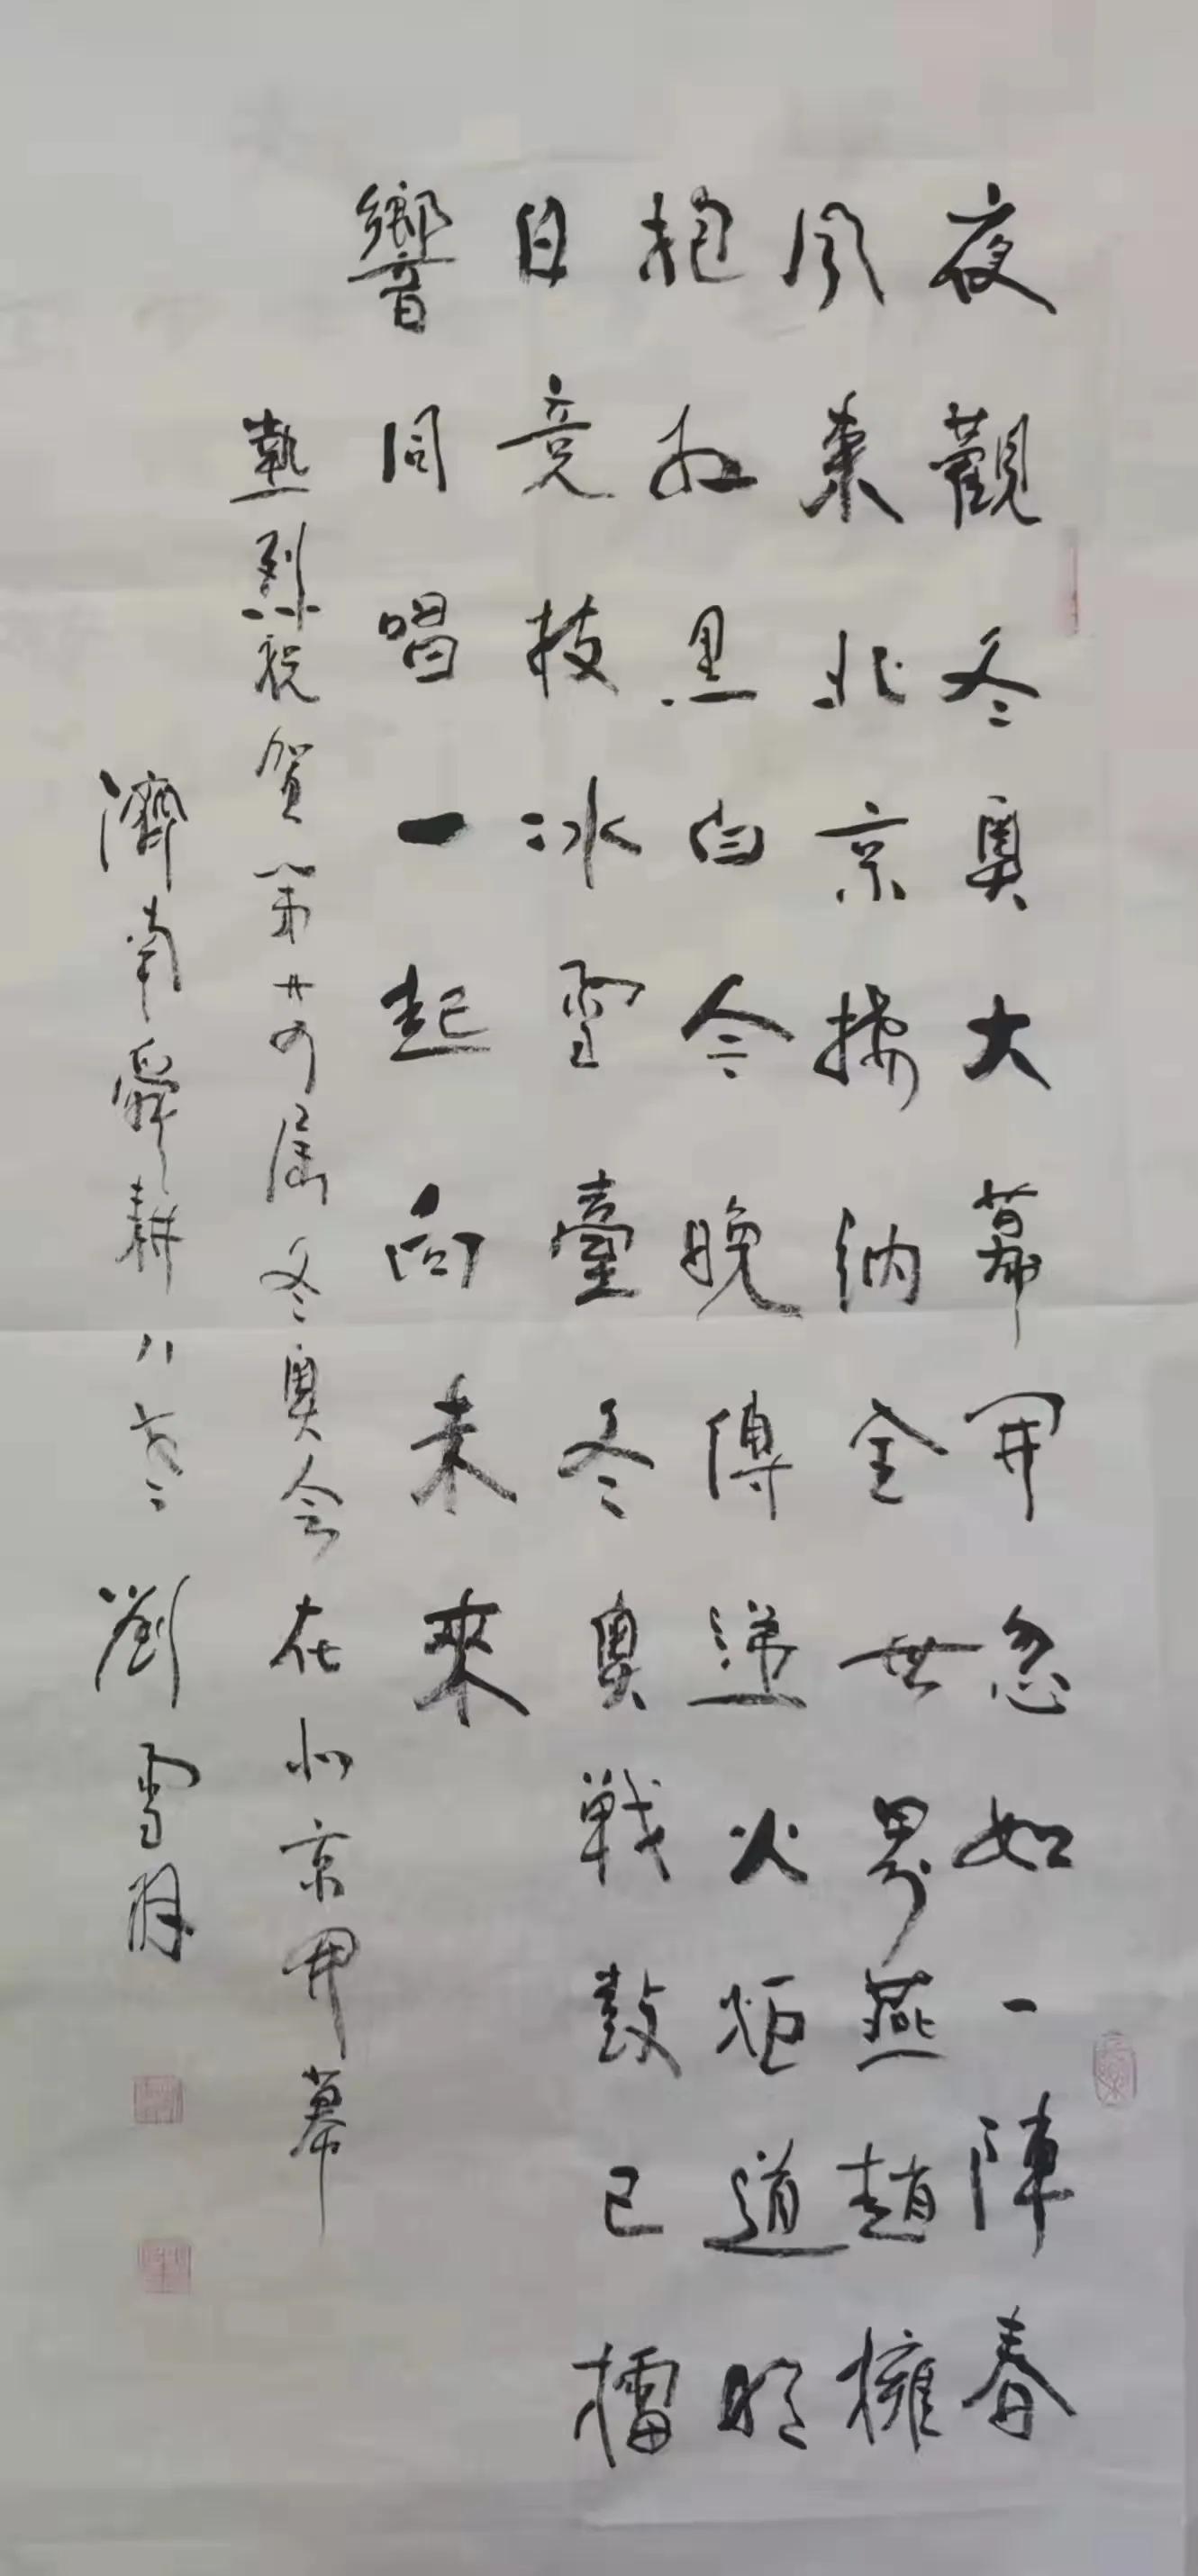 夜觀冬奧大幕開忽如一陣春
風來北京接納全世界燕趙擁
抱紅黑白今晚傳遞火炬道明
日競技冰雪臺冬奧戰鼓已擂
響同唱一起向未來
熱烈祝賀第廿四屆冬奧会在北京開幕
濟南舜耕八十老 劉雪